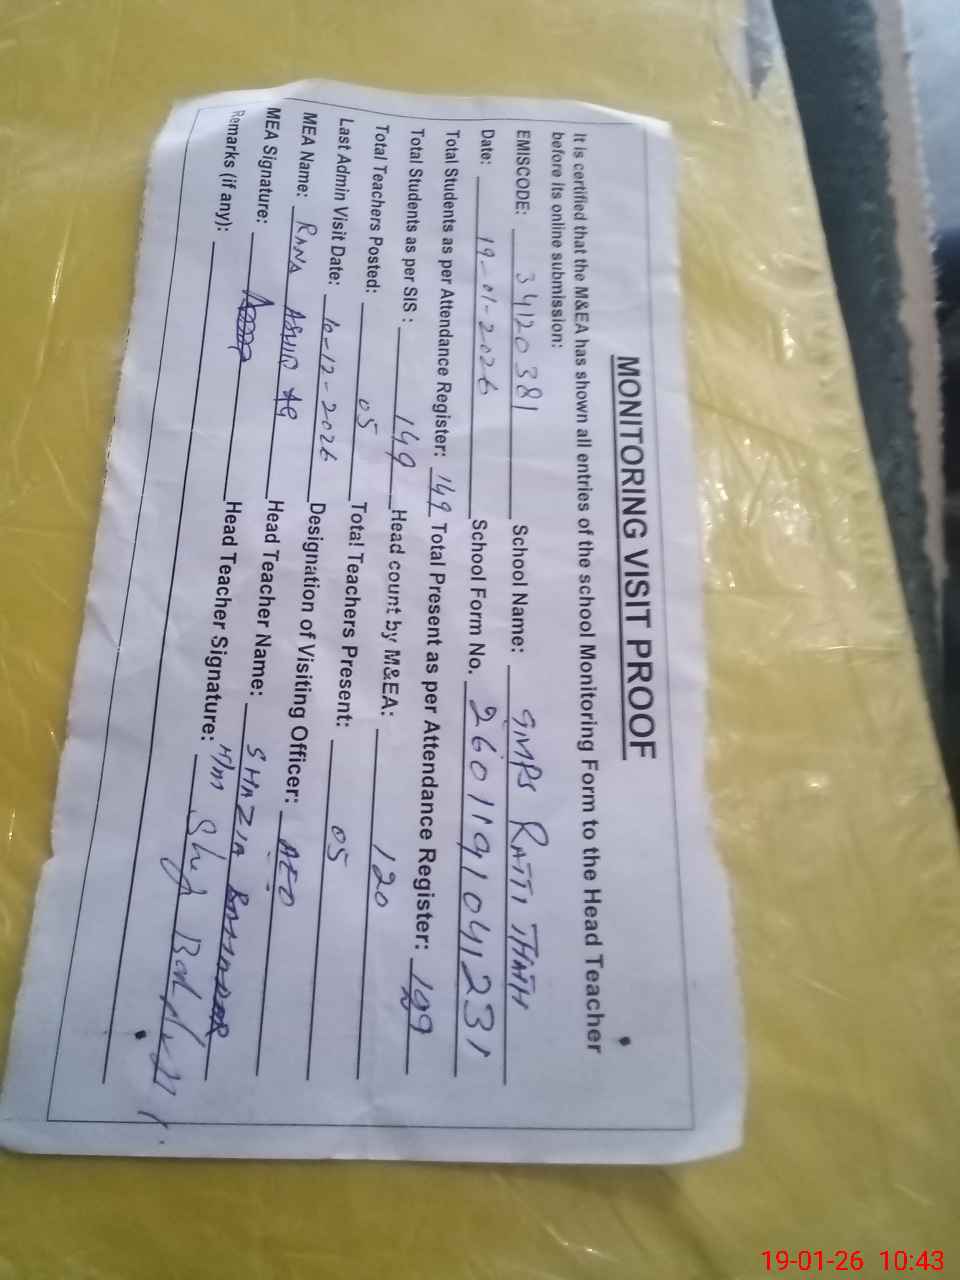 MONITORING VISIT PROOF
It is certified that the M&EA has shown all entries of the school Monitoring Form to the Head Teacher
before its online submission:
EMISCODE: 34120381 School Name: GMPS RATTI THATH
Date: 19-01-2026 School Form No. 2601191041231
Total Students as per Attendance Register: 149 Total Present as per Attendance Register:
Total Students as per SIS: 149 Head count by M&EA: 120
Total Teachers Posted: 05 Total Teachers Present: 05
Last Admin Visit Date: 10-12-2026 Designation of Visiting Officer: AEO
MEA Name: RANA Head Teacher Name: SHAZIA
MEA Signature: Head Teacher Signature:
Remarks (if any):
19-01-26 10:43